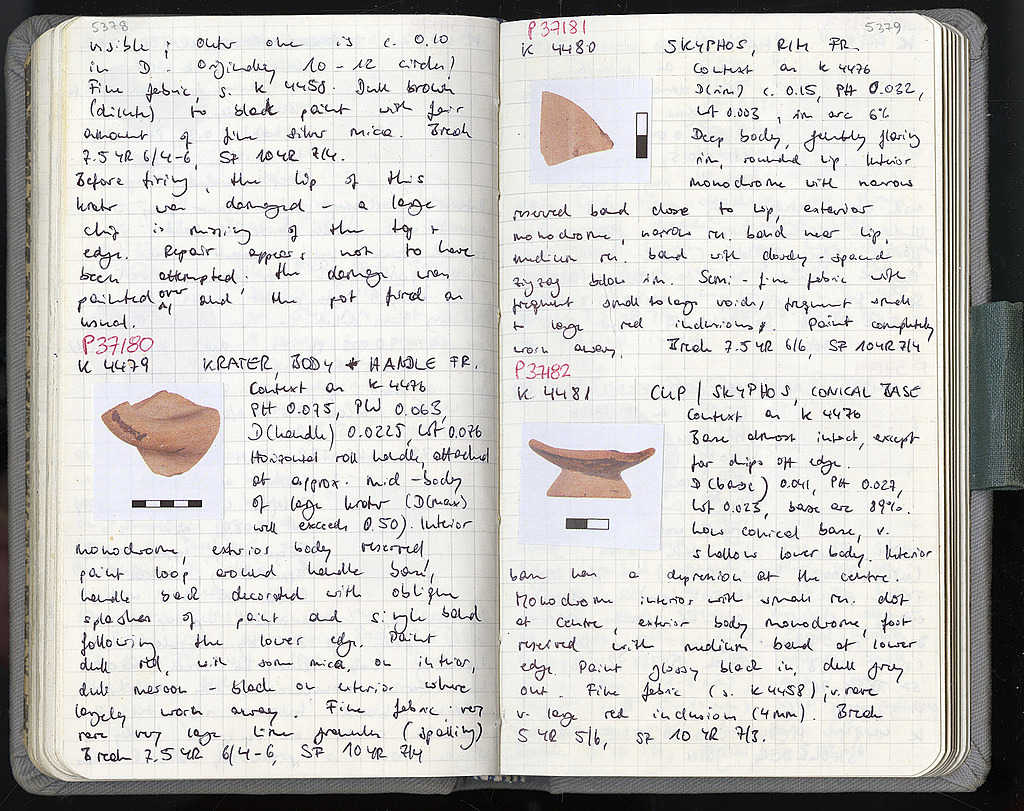 5378
visible; outer one is c. 0.10
in D. Originally 10-12 circles?
Fine fabric, s. K 4458. Dark brown
(dilute) to black paint with fair
amount of fine silver mica. Break
7.5 YR 6/4-6, SF 10YR 7/4.
Before firing, the lip of this
krater was damaged - a large
chip is missing of the top +
edge. Repair appears not to have
been attempted; the damage was
painted over and the pot fired as
usual.
P37180
K 4479 KRATER, BODY + HANDLE FR.
Context as K 4476
PH 0.075, PW 0.063,
D(handle) 0.0225, WT 0.076
Horizontal roll handle, attached
at approx. mid-body
of large krater (D(max)
will exceeds 0.50). Interior
monochrome, exterior body reserved,
paint loop around handle base,
handle back decorated with oblique
splashes of paint and single band
following the lower edge. Paint
dull red, with some mica, on interior,
dull maroon - black on exterior where
largely worn away. Fine fabric; very
rare very large lime granules (spalling)
Break 7.5 YR 6/4-6, SF 10YR 7/4
5379
P37181
K 4480 SKYPHOS, RIM FR.
Context as K 4476
D(rim) c. 0.15, PH 0.032,
WT 0.003, rim arc 6%
Deep body, gently flaring
rim, rounded lip. Interior
monochrome with narrow
reserved band close to lip, exterior
monochrome, narrow rs. band near lip,
medium rs. band with closely-spaced
zigzag below rim. Semi-fine fabric with
frequent small to large voids, frequent small
to large red inclusions. Paint completely
worn away. Break 7.5 YR 6/6, SF 10YR 7/4
P37182
K 4481 CUP / SKYPHOS, CONICAL BASE
Context as K 4476
Base almost intact, except
for chips off edge.
D(base) 0.041, PH 0.027,
WT 0.023, base arc 89%.
Low conical base, v.
shallow lower body. Interior
base has a depression at the centre.
Monochrome interior with small rs. dot
at centre, exterior body monochrome, foot
reserved with medium band at lower
edge. Paint glossy black in, dull grey
out. Fine fabric (s. K 4458); v. rare
v. large red inclusion (4mm). Break
5 YR 5/6, SF 10 YR 7/3.